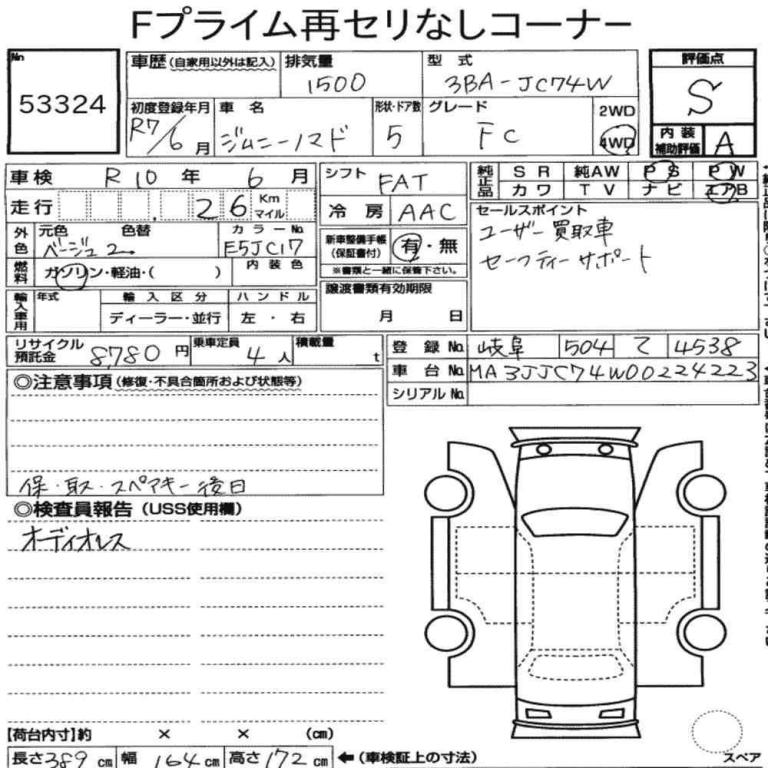 Fプライム再セリなしコーナー
No 53324
車歴(自家用以外は記入) 排気量 1500 型式 3BA-JC74W 評価点 S
初度登録年月 R7/6月 車名 ジムニーノマド 形状・ドア数 5 グレード FC 2WD 4WD 内装補助評価 A
車検 R10年 6月 シフト FAT 純正品 SR 純AW PS PW
走行 26 Km マイル 冷房 AAC カワ TV ナビ エアB
外色 元色 ベージュ2 色替 カラーNo. E5JC17 新車整備手帳(保証書付) 有・無 ※書類と一緒に保管下さい。
セールスポイント
ユーザー買取車
セーフティーサポート
燃料 ガソリン・軽油・( ) 内装色
輸入車用 年式 輸入区分 ハンドル 譲渡書類有効期限
ディーラー・並行 左・右 月 日
リサイクル預託金 8,780円 乗車定員 4人 積載量 t 登録No. 岐阜 504 て 4538
車台No. MA3JJC74W00224223
シリアルNo.
◎注意事項(修復・不具合箇所および状態等)
保・取・スペアキー後日
◎検査員報告(USS使用欄)
オーディオレス
【荷台内寸】約 × × (cm)
長さ389cm 幅164cm 高さ172cm ←(車検証上の寸法) スペア